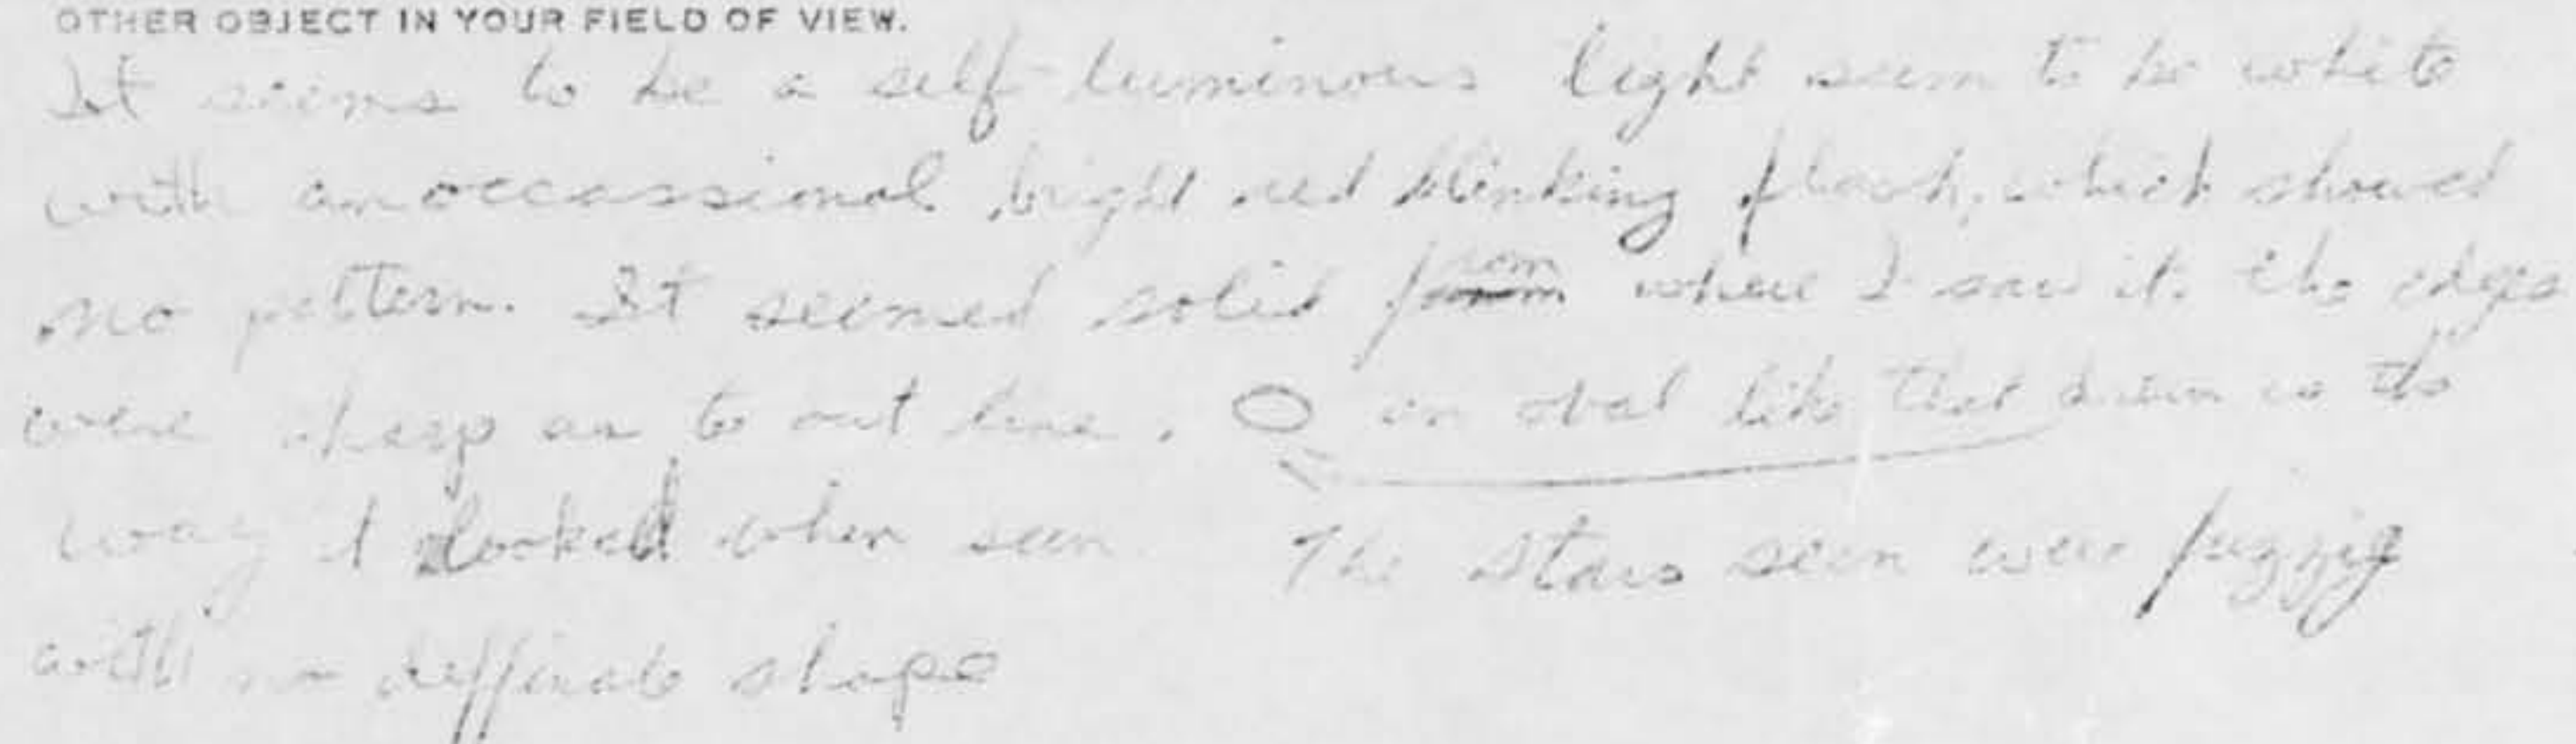 OTHER OBJECT IN YOUR FIELD OF VIEW.
It seems to be a self-luminous light seem to be white
with an occassional bright red blinking flash, which showed
no pattern. It seemed solid from where I saw it. the edges
were sharp as to out line. an oval like that drawn is the
way it looked when seen The stars seen were fuzzy
with no deffinate shape